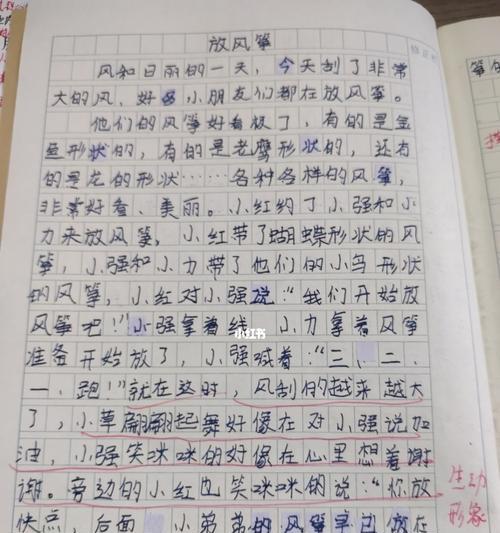 放风筝
风和日丽的一天，今天刮了非常
大的风，好多小朋友们都在放风筝。
他们的风筝好看极了，有的是金
鱼形状的，有的是老鹰形状的，还有
的是龙的形状……各种各样的风筝，
非常好看、美丽。小红约了小强和小
力来放风筝，小红带了蝴蝶形状的风
筝，小强和小力带了他们的小鸟形状
的风筝，小红对小强说：“我们开始放
风筝吧！”小强拿着线，小力拿着风筝
小红书
准备开始放了，小强喊着：“三、二、
一、跑！”就在这时，风刮的越来越大
了，小草翩翩起舞好像在对小强说加
油，小强笑咪咪的好像在心里想着谢
谢。旁边的小红也笑咪咪的说：“你放
快点，后面小弟弟的风筝早已放在
生动
形象
筝的